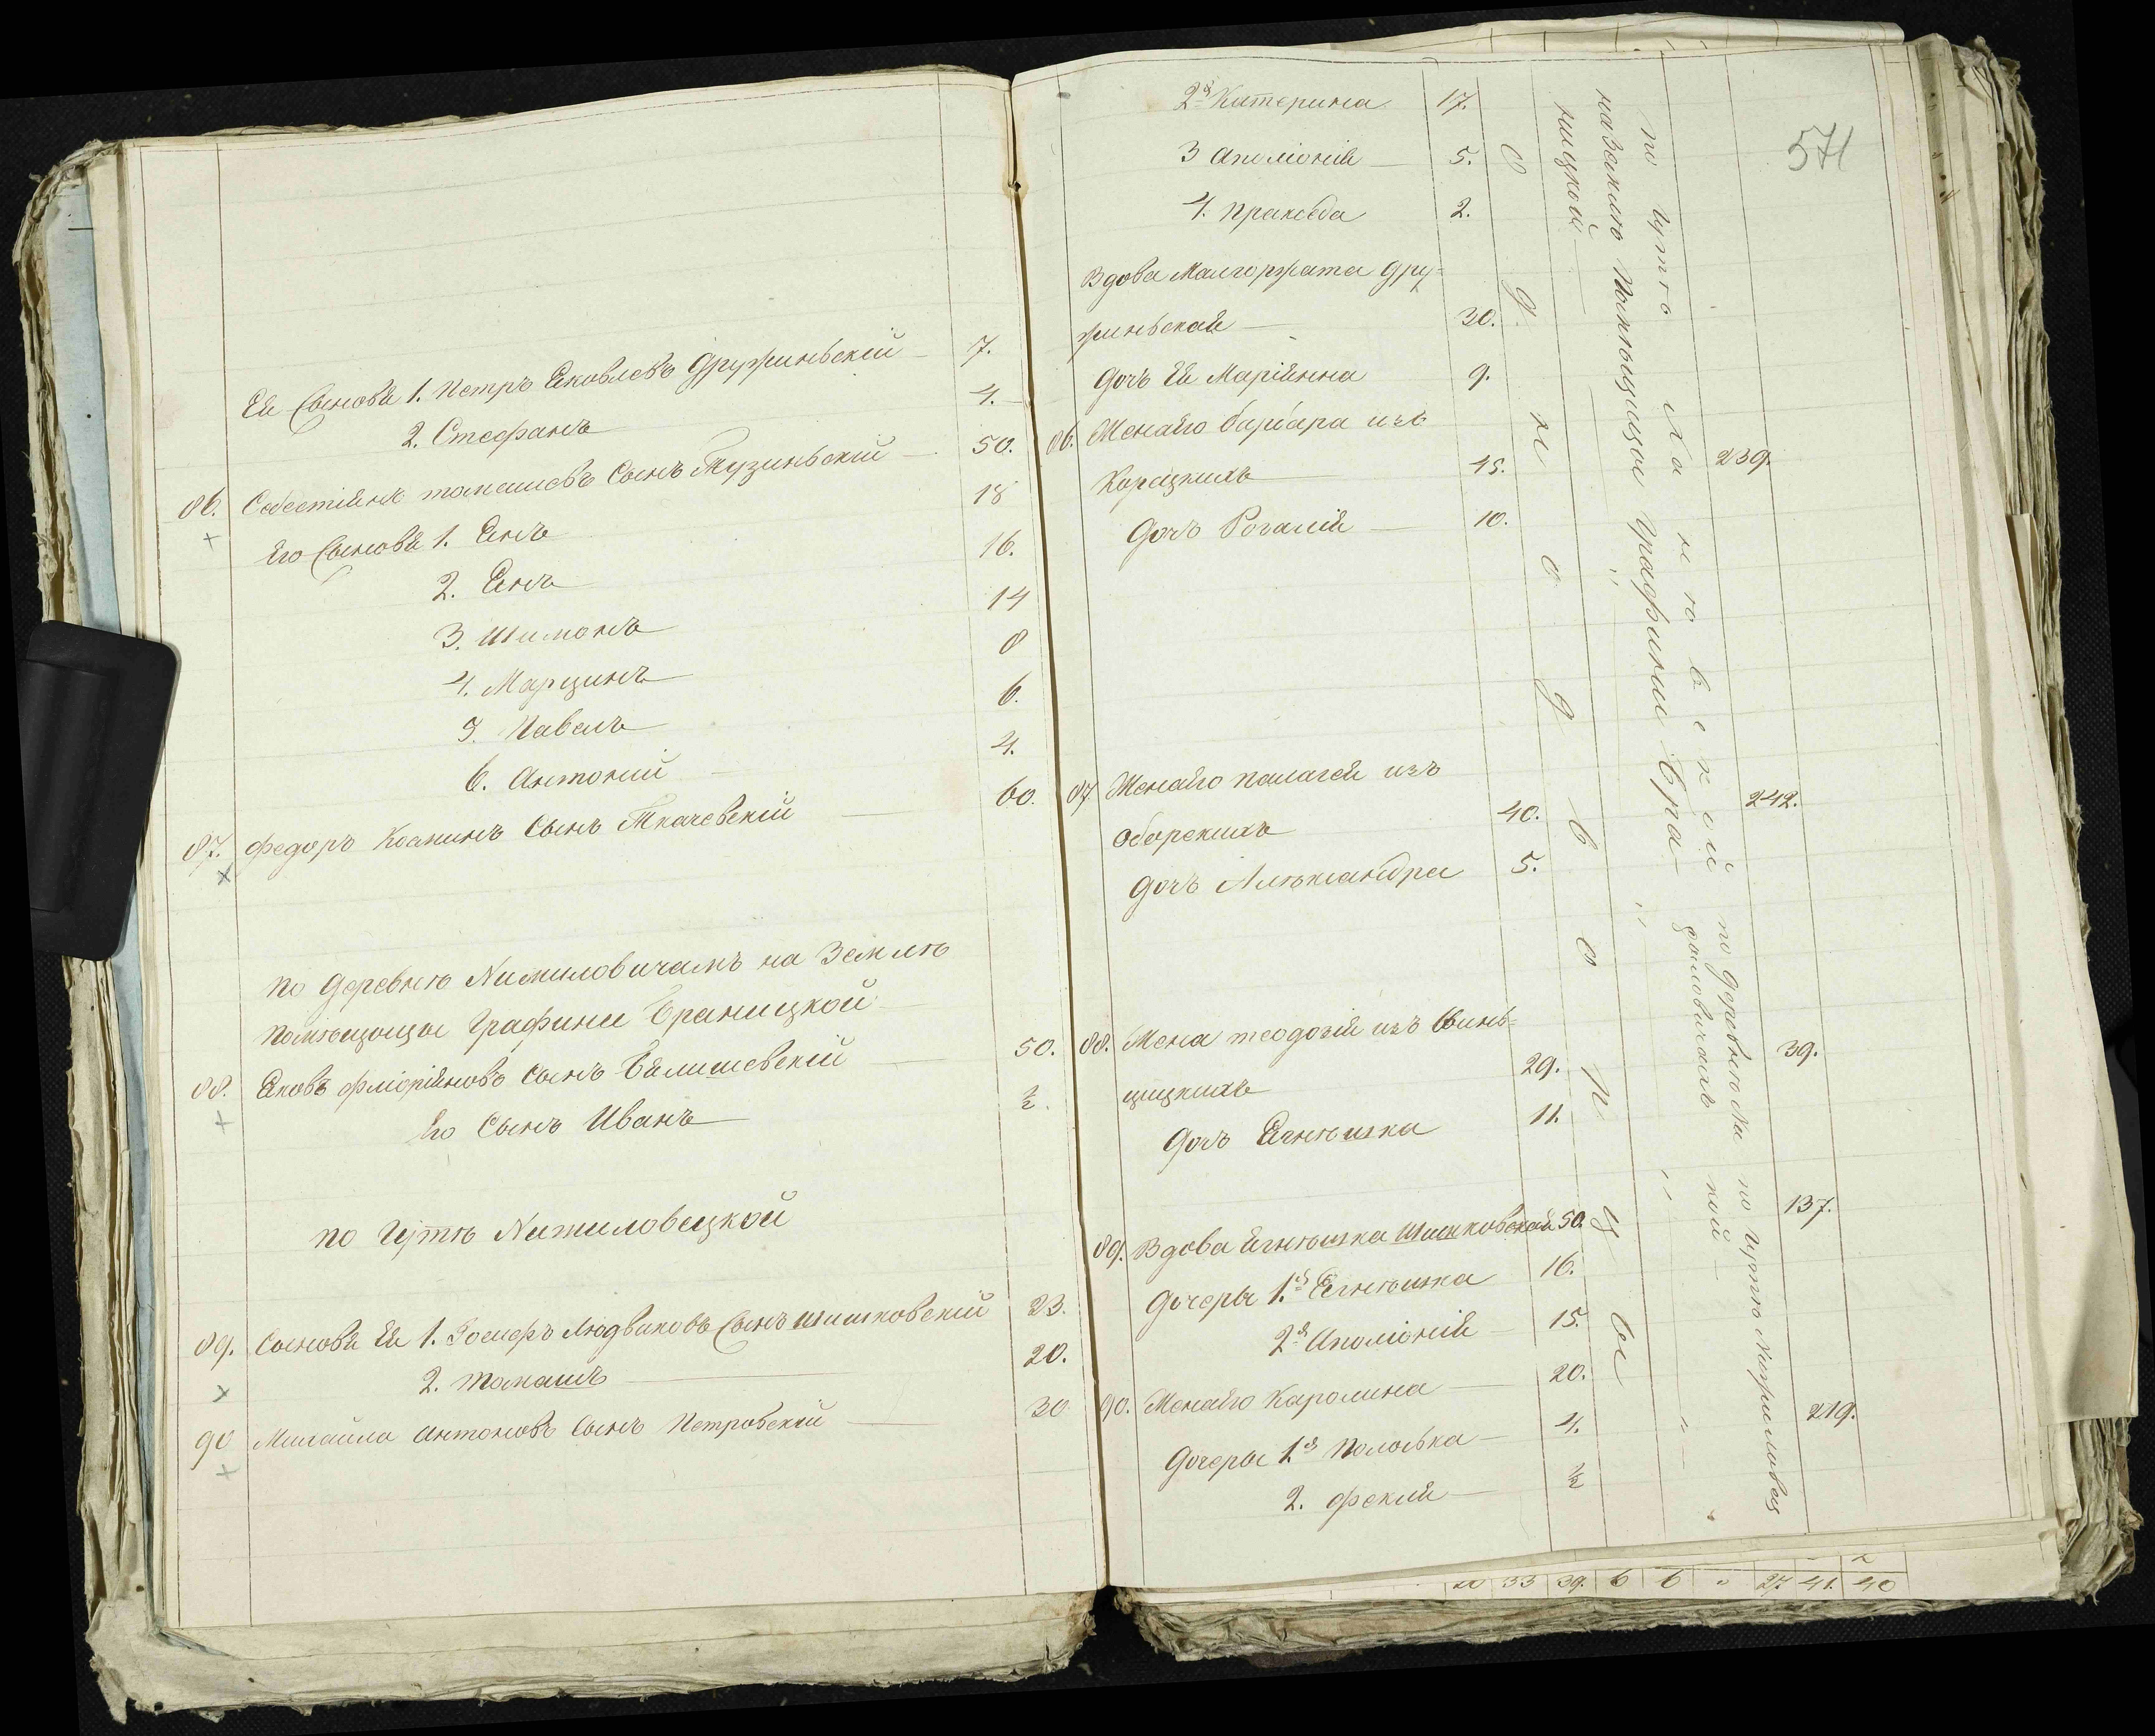 Ея Сыновя 1. Петръ Яковлевъ Дружиньскій 7.
2. Стефанъ 4.
86. Себестіянъ томашевъ Сынъ Тузиньскій 50.
Его Сыновя 1. Янъ 18
2. Янъ 16.
3. Шимонъ 14
4. Марцинъ 8
5. Павелъ 6.
6. Антоній 4.
87. Федоръ Косминъ Сынъ Ткачевскій 60.
по Деревнѣ Нижиловичамъ на Землѣ
помѣщицы Графини Браницкой
88. Яковъ Флоріяновъ Сынъ Бялишевскій 50.
Его Сынъ Иванъ ½.
по Гутѣ Нижиловецкой
89. Сыновя Ея 1. Іосифъ Людвиковъ Сынъ Шишковскій 23.
2. Томашъ 20.
90 Михайла Антоновъ Сынъ Петровскій 30
571
2я Катерина 17.
3 Аполіонія 5.
4. Пракседа 2.
Вдова Малгоржата Дру-
жиньская 30.
Дочь Ея Маріянна 9.
86. Жена его барбара изъ
Корецкихъ 45.
Дочь Розалія 10.
239.
87. Жена его палагея изъ
Оборскихъ 40.
Дочь Алѣксандра 5.
242.
88. Жена теодозія изъ Винь-
цицкихъ 29.
Дочь Ягнѣшка 11.
39.
89. Вдова Ягнѣшка Шишковская 50.
Дочеры 1.я Ягнѣшка 16.
2я Аполіонія 15.
137.
90. Жена его Каролина 20.
Дочеры 1.я Полоська 4.
2. Фекля ½
219.
Однодворцы
по Гутѣ Ханѣвской
на Землѣ Помѣщицы Графини Бра-
ницкой
по Деревнѣ Ни
жиловичахъ
по Гутѣ Нижиловец
кой
20 33 39. 6 6 " 27. 41. 40